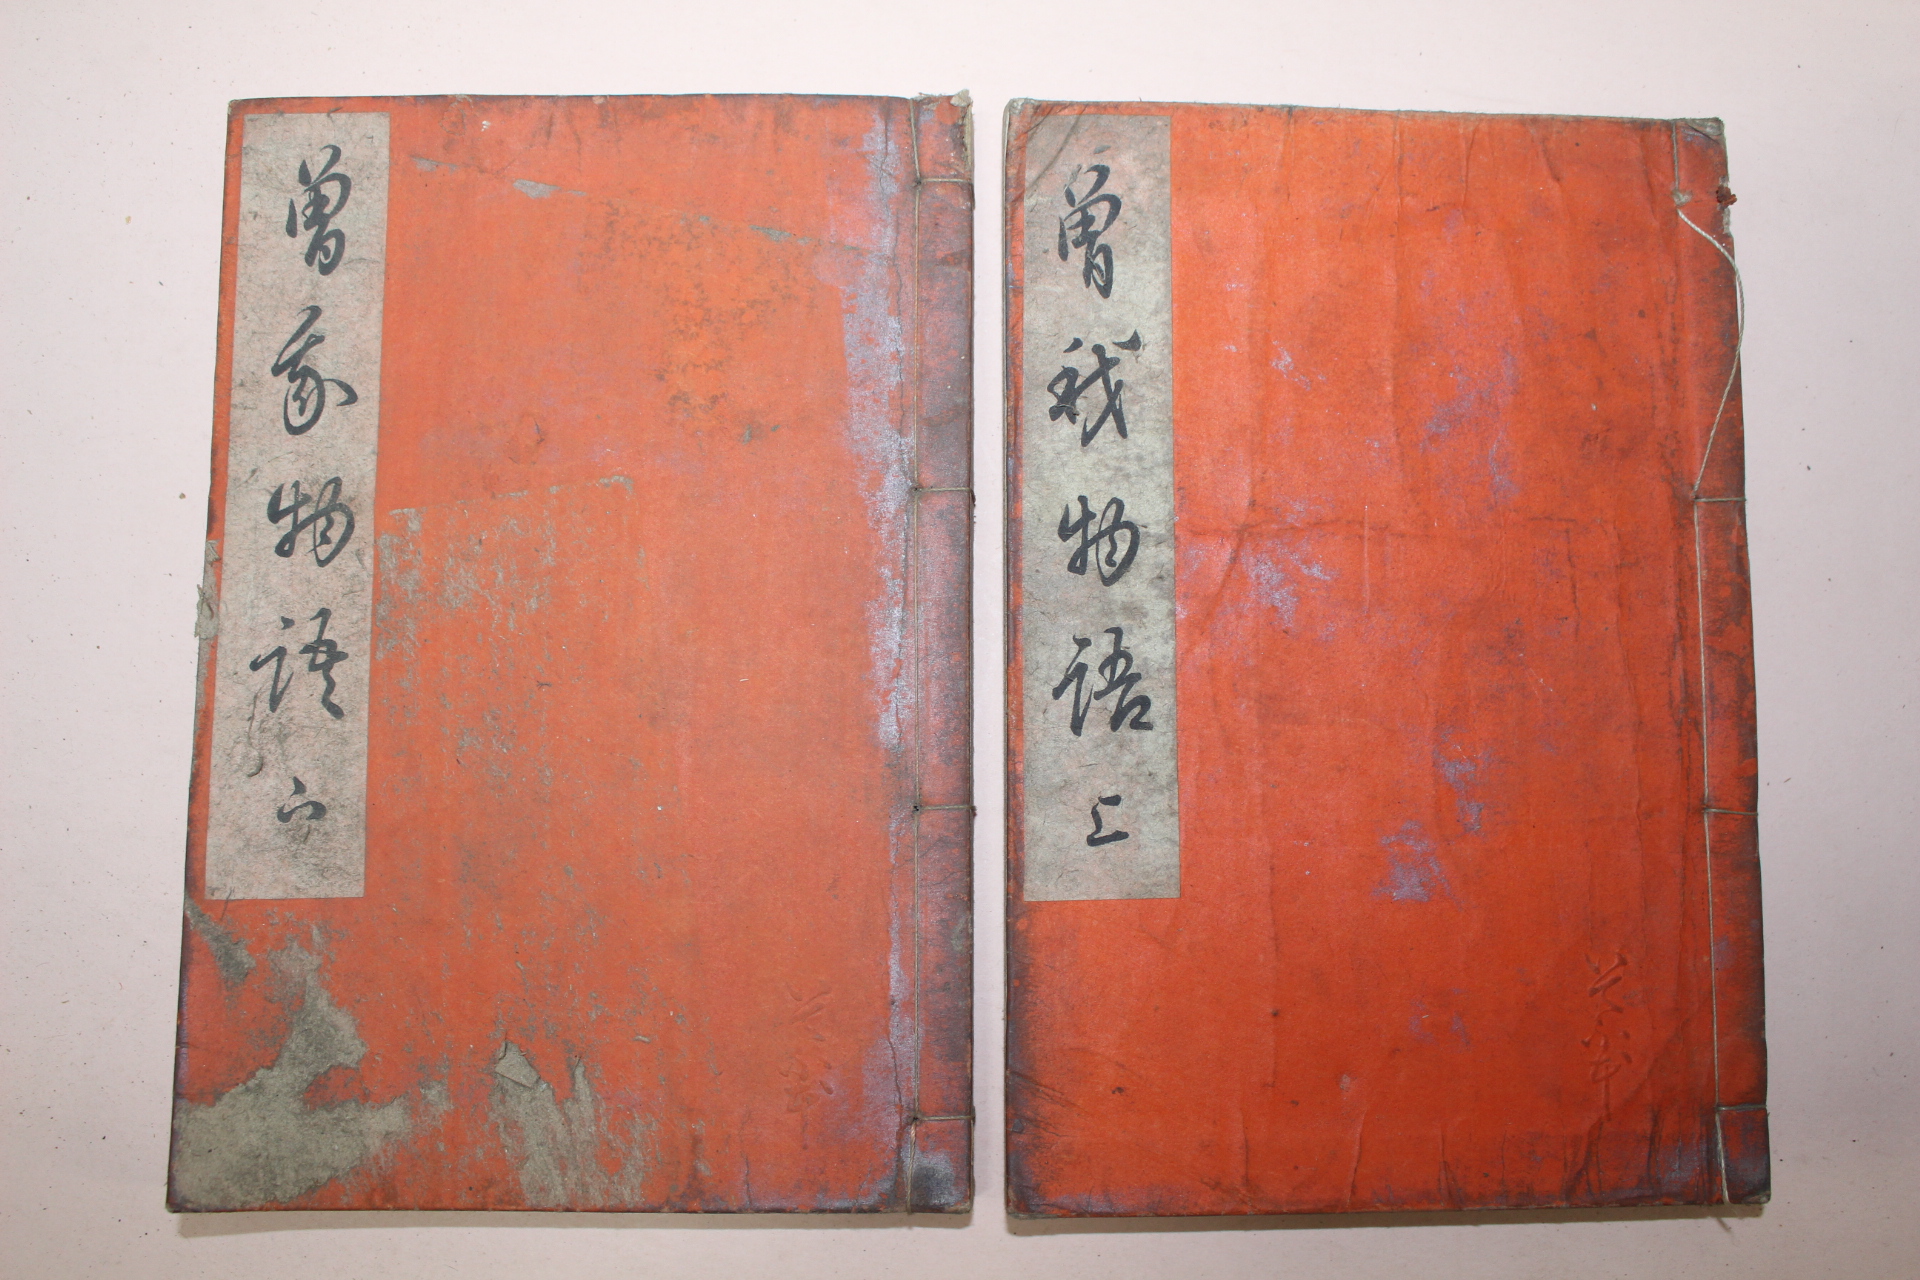 曽我物語 上
曽我物語 下